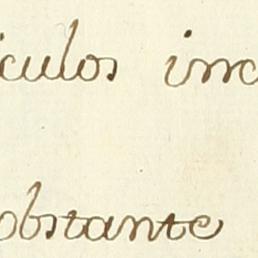 iculos inc
obstante